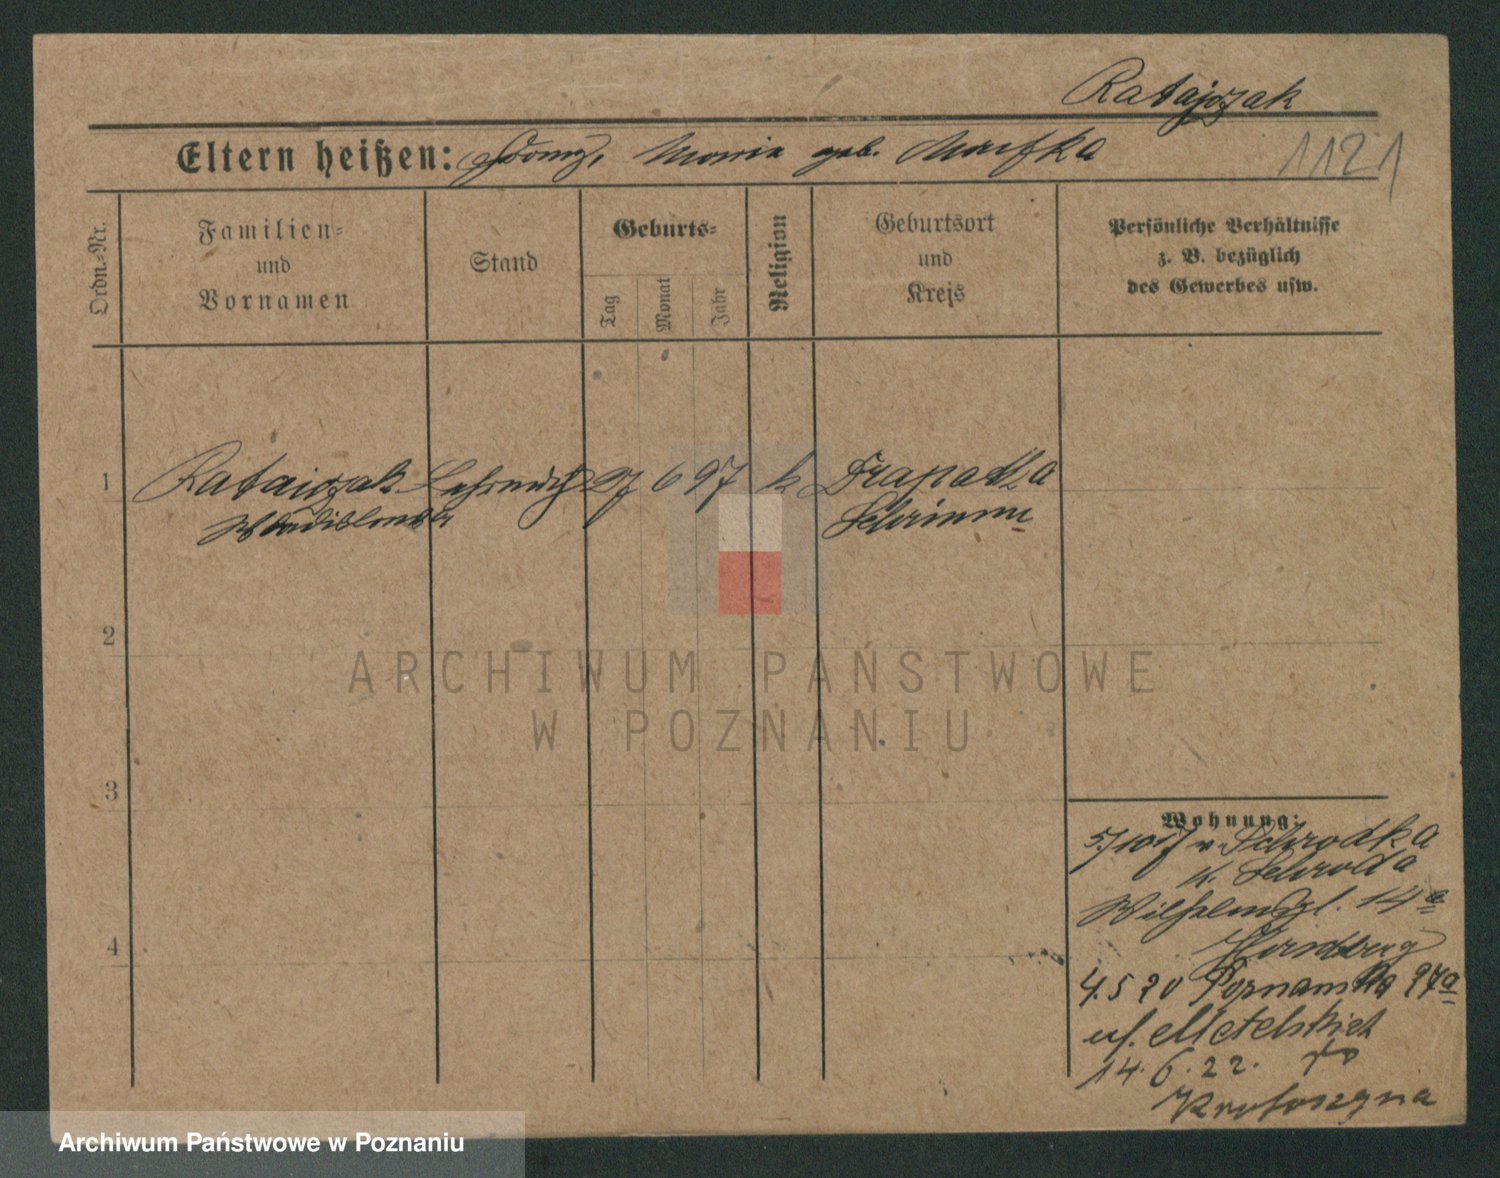 Ratajczak
Eltern heißen: Maria geb.
1121
Ordn.-Nr.
Familien-
und
Vornamen
Stand
Geburts-
Tag
Monat
Jahr
Religion
Geburtsort
und
Kreis
Persönliche Verhältnisse
z. B. bezüglich
des Gewerbes usw.
1
Rataiczak 27 6 97 k Drapadka
Schrimm
2
3
4
Wohnung:
5/10 17 v. Schrodka
K. Schroda
Wilhelmspl. 14a
4.5 20 Poznanska
ul. Metelskich
14.6.22. do
Krotoszyna
ARCHIWUM PAŃSTWOWE
W POZNANIU
Archiwum Państwowe w Poznaniu